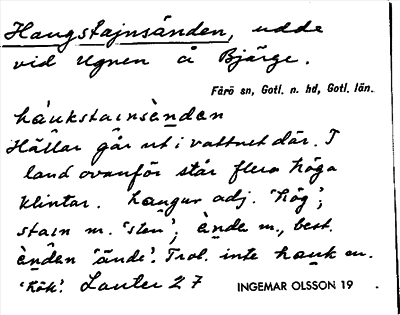 Haugstajnsänden, udde
vid Ugnen å Bjärge.
Fårö sn, Gotl. n. hd, Gotl. län.
háukstainsè̱nden
Hällar går ut i vattnet där. I
land ovanför står flera höga
klintar. haugur adj. 'hög';
stain m. 'sten'; ènde m., best.
ènden 'ände'. Trol. inte hauk m.
'hök'. Lauter 27
INGEMAR OLSSON 19